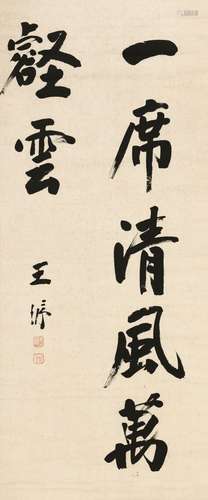 一席清風萬
壑雲
王澍